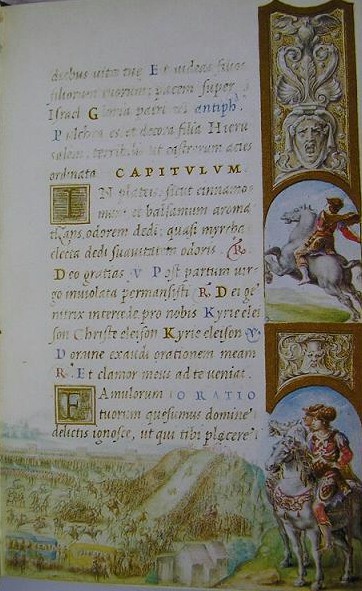 diebus uitæ tuę Et uideas filios
filiorum tuorum: pacem super
Israel Gloria patri antiph̃.
Pulchra es, et decora filia Hieru
salem: terribilis ut castrorum acies
ordinata CAPITVLVM.
IN plateis, sicut cinnamo-
mum et balsamum aroma
tiʒans, odorem dedi: quasi myrrha
electa dedi suauitatem odoris. R
Deo gratias V Post partum uir-
go inuiolata permansisti R. Dei ge
nitrix intercede pro nobis Kyrie elei
son Christe eleison Kyrie eleison V
Domine exaudi orationem meam
R. Et clamor meus ad te ueniat.
FAmulorum ORATIO
tuorum quesumus domine
delictis ignosce, ut qui tibi placere